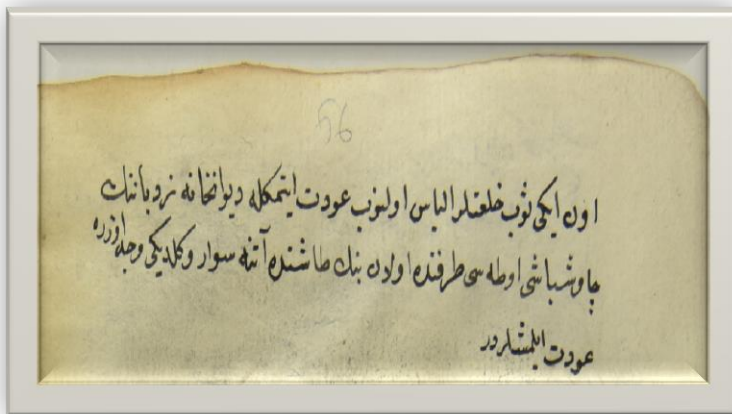 56
اون ایکی ثوب خلعتلر الباس اولنوب عودت ایتمکله دیوانخانه نردباننك
چاوشباشی اوطه سی طرفنده اولان بنك طاشنده آتنه سوار وکلدیکی وجه اوزره
عودت ایلمشلردر